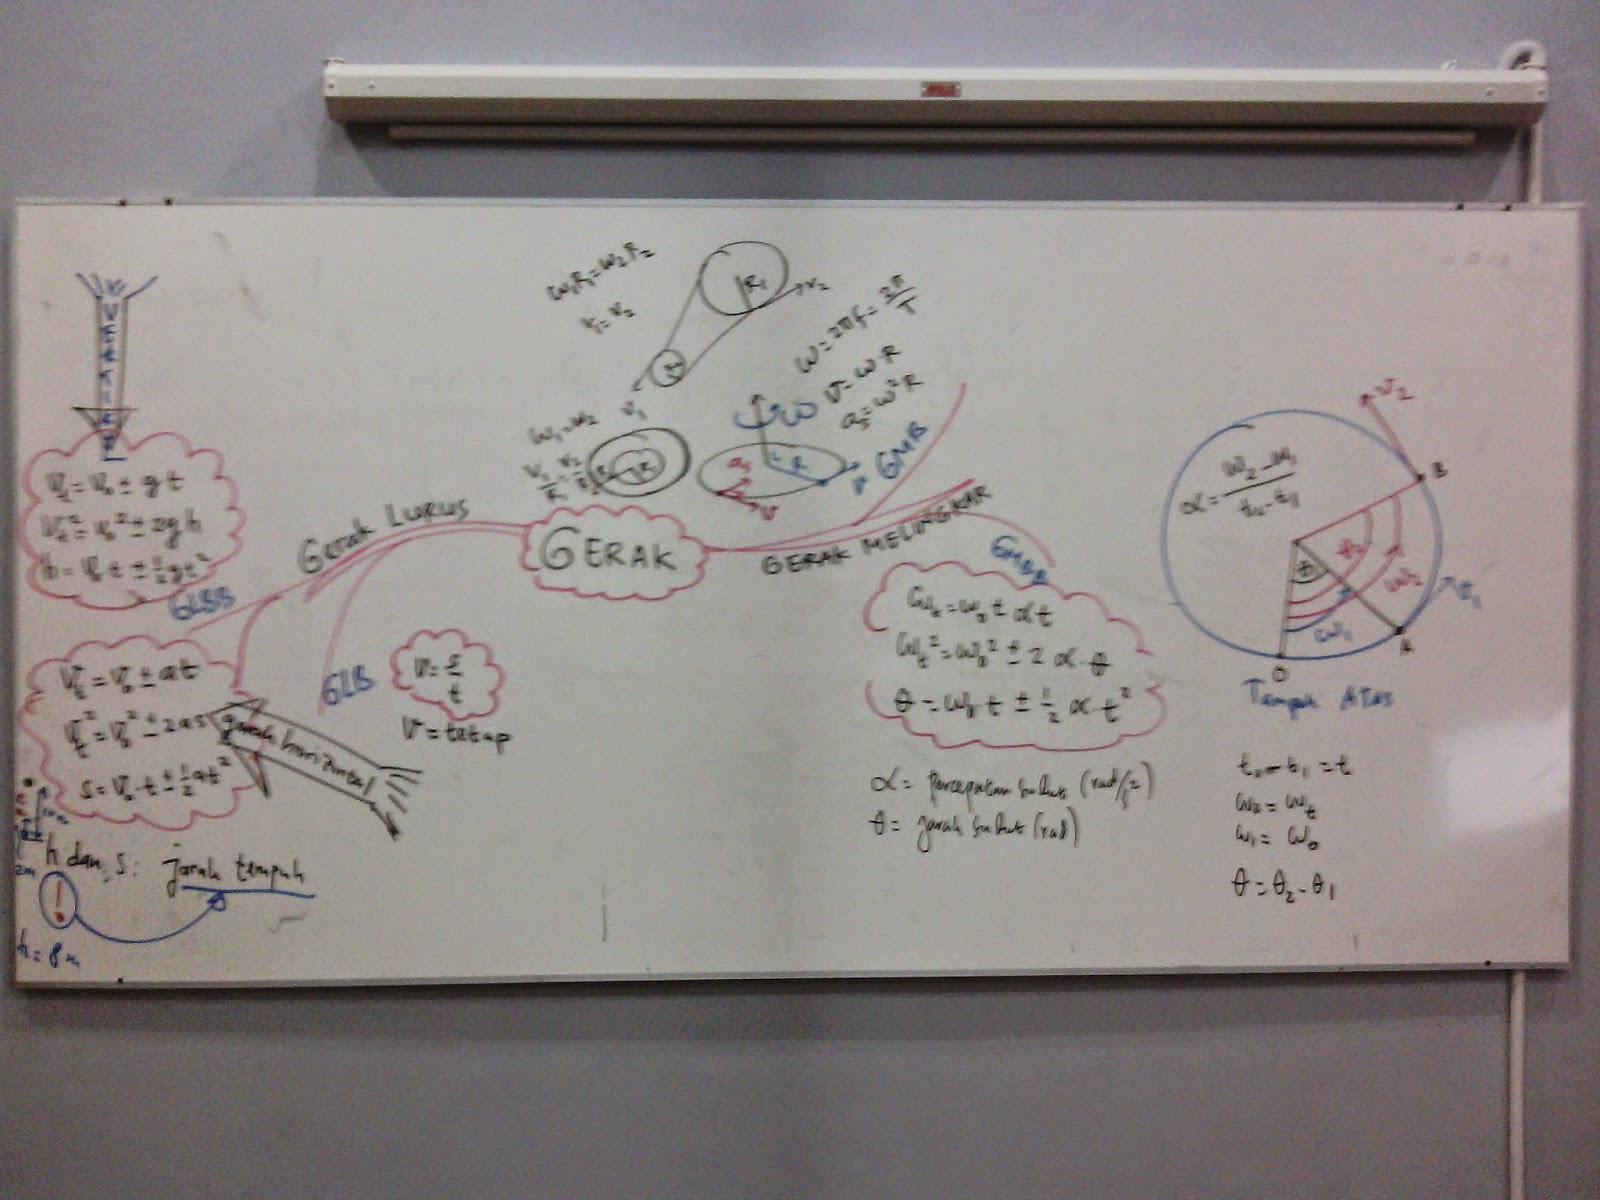 VERTIKAL
Vt = V0 ± gt
Vt² = v0² ± 2gh
h = V0 t ± ½gt²
GLBB
Vt = V0 ± at
Vt² = V0² ± 2as
s = V0·t ± ½at²
gerak horizontal
h dan s: jarak tempuh
!
h = 8 m
2m
Gerak LURUS
GLB
v = s/t
v = tetap
GERAK
ω1R1 = ω2R2
v1 = v2
R1
v2
v1
ω1 = ω2
R
v
as
v
ω
ω = 2πf = 2π/T
v = ω·R
as = ω²R
GMB
GERAK MELINGKAR
GMBB
ωt = ω0 ± αt
ωt² = ω0² ± 2 α·θ
θ = ω0·t ± ½ α·t²
α = percepatan sudut (rad/s²)
θ = jarak sudut (rad)
v2
B
α = (ω2 - ω1)/(t2 - t1)
ω2
v1
ω1
A
O
Tampak Atas
t2 - t1 = t
ω2 = ωt
ω1 = ω0
θ = θ2 - θ1